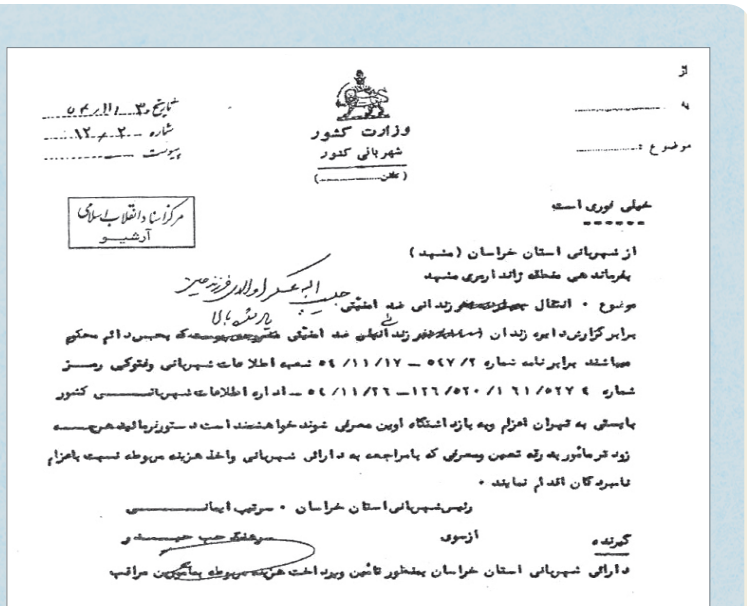 از
به
موضوع :
وزارت کشور
شهربانی کشور
تاریخ ۳۰/۱۱/۵۴
شماره
پیوست
مرکز اسناد انقلاب اسلامی
آرشیو
خیلی فوری است
از شهربانی استان خراسان (مشهد)
بفرماندهی منطقه ژاندارمری مشهد
حبیب اله عسگر اولادی فرزند حسین
موضوع . انتقال زندانی ضد امنیتی
برابر گزارش دایره زندان زندانیان ضد امنیتی که بحبس دائم محکوم
میباشند برابر نامه شماره ۵۴۷/۲ – ۵٤/۱۱/۱۷ شعبه اطلاعات شهربانی وفتوکپی رمز
شماره – ۵٤/۱۱/۲٦ – اداره اطلاعات شهربانی کشور
بایستی به تهران اعزام وبه بازداشتگاه اوین معرفی شوند خواهشمند است دستور فرمائید هرچه
زود تر مأمور بدرقه تعیین ومعرفی که بامراجعه به دارائی شهربانی واخذ هزینه مربوطه نسبت باعزام
نامبردگان اقدام نمایند .
رئیس شهربانی استان خراسان . سرتیپ ایمانی
از سوی سرهنگ
گیرنده
دارائی شهربانی استان خراسان بمنظور تأمین وپرداخت هزینه مربوطه بمأمورین مراقب